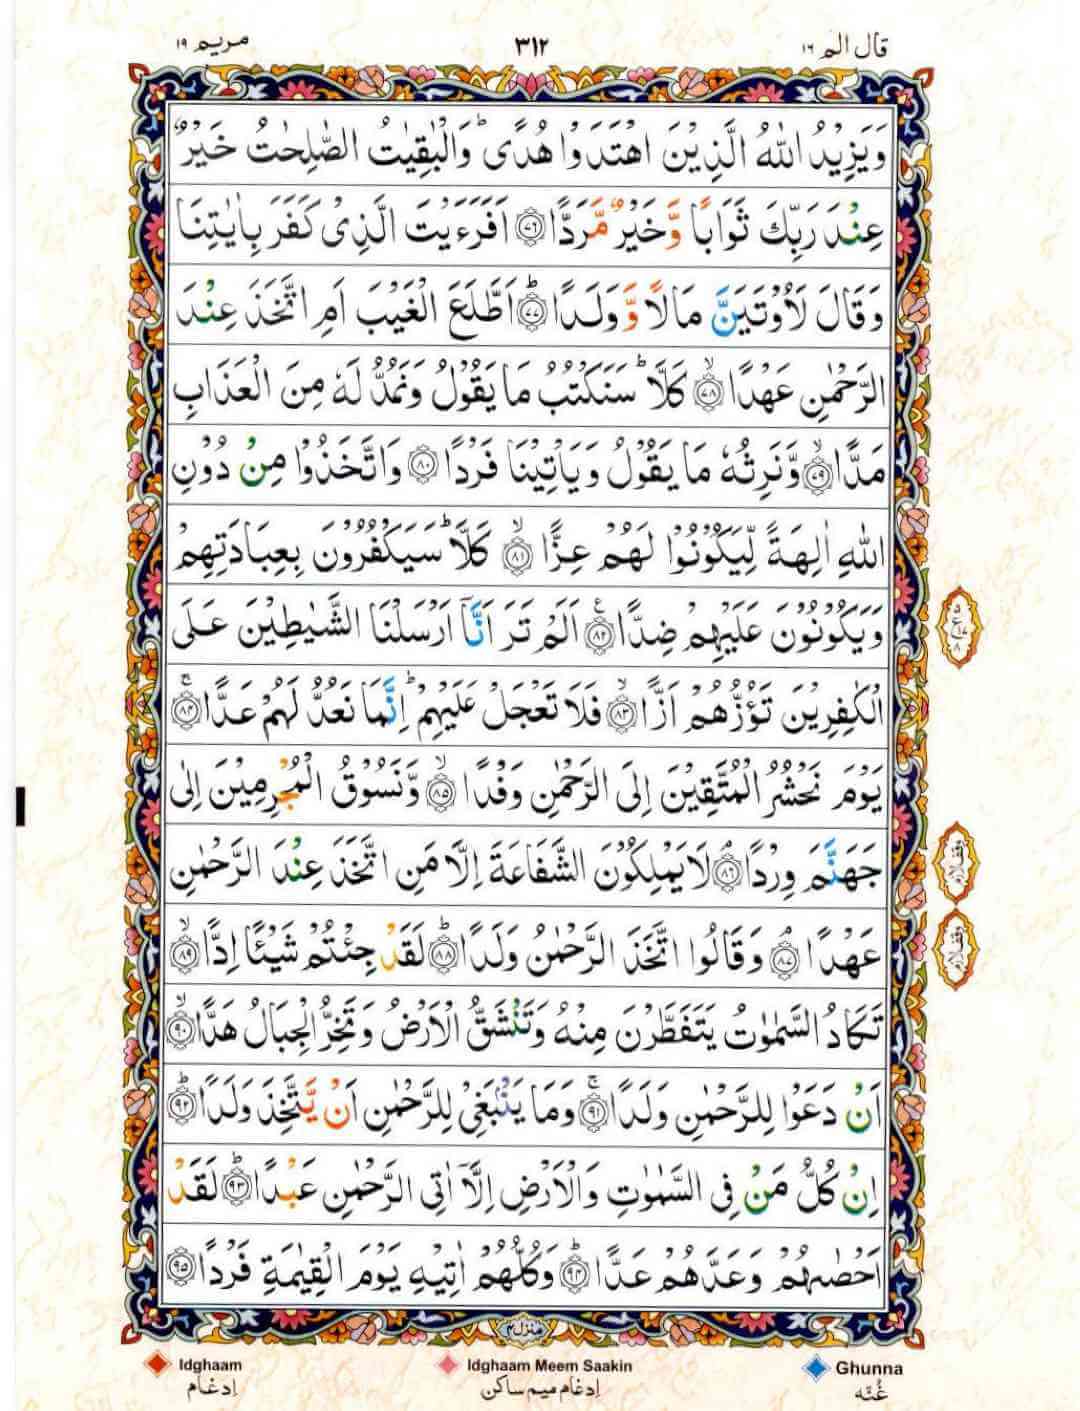 قال الم ۱۶
۳۱۲
مریم ۱۹
وَيَزِيْدُ اللّٰهُ الَّذِيْنَ اهْتَدَوْا هُدًى ؕ وَالْبٰقِيٰتُ الصّٰلِحٰتُ خَيْرٌ
عِنْدَ رَبِّكَ ثَوَابًا وَّخَيْرٌ مَّرَدًّا ۝۷۶ اَفَرَءَيْتَ الَّذِىْ كَفَرَ بِاٰيٰتِنَا
وَقَالَ لَاُوْتَيَنَّ مَالًا وَّوَلَدًا ؕ۝۷۷ اَطَّلَعَ الْغَيْبَ اَمِ اتَّخَذَ عِنْدَ
الرَّحْمٰنِ عَهْدًا ۙ۝۷۸ كَلَّا ؕ سَنَكْتُبُ مَا يَقُوْلُ وَنَمُدُّ لَهٗ مِنَ الْعَذَابِ
مَدًّا ۙ۝۷۹ وَّنَرِثُهٗ مَا يَقُوْلُ وَيَاْتِيْنَا فَرْدًا ۝۸۰ وَاتَّخَذُوْا مِنْ دُوْنِ
اللّٰهِ اٰلِهَةً لِّيَكُوْنُوْا لَهُمْ عِزًّا ۙ۝۸۱ كَلَّا ؕ سَيَكْفُرُوْنَ بِعِبَادَتِهِمْ
وَيَكُوْنُوْنَ عَلَيْهِمْ ضِدًّا ۝۸۲ۧ اَلَمْ تَرَ اَنَّاۤ اَرْسَلْنَا الشَّيٰطِيْنَ عَلَى
الْكٰفِرِيْنَ تَؤُزُّهُمْ اَزًّا ۙ۝۸۳ فَلَا تَعْجَلْ عَلَيْهِمْ ؕ اِنَّمَا نَعُدُّ لَهُمْ عَدًّا ۚ۝۸۴
يَوْمَ نَحْشُرُ الْمُتَّقِيْنَ اِلَى الرَّحْمٰنِ وَفْدًا ۙ۝۸۵ وَّنَسُوْقُ الْمُجْرِمِيْنَ اِلٰى
جَهَنَّمَ وِرْدًا ۘ۝۸۶ لَا يَمْلِكُوْنَ الشَّفَاعَةَ اِلَّا مَنِ اتَّخَذَ عِنْدَ الرَّحْمٰنِ
عَهْدًا ۘ۝۸۷ وَقَالُوا اتَّخَذَ الرَّحْمٰنُ وَلَدًا ؕ۝۸۸ لَقَدْ جِئْتُمْ شَيْئًا اِدًّا ۙ۝۸۹
تَكَادُ السَّمٰوٰتُ يَتَفَطَّرْنَ مِنْهُ وَتَنْشَقُّ الْاَرْضُ وَتَخِرُّ الْجِبَالُ هَدًّا ۙ۝۹۰
اَنْ دَعَوْا لِلرَّحْمٰنِ وَلَدًا ۚ۝۹۱ وَمَا يَنْۢبَغِىْ لِلرَّحْمٰنِ اَنْ يَّتَّخِذَ وَلَدًا ؕ۝۹۲
اِنْ كُلُّ مَنْ فِى السَّمٰوٰتِ وَالْاَرْضِ اِلَّاۤ اٰتِى الرَّحْمٰنِ عَبْدًا ؕ۝۹۳ لَقَدْ
اَحْصٰىهُمْ وَعَدَّهُمْ عَدًّا ؕ۝۹۴ وَكُلُّهُمْ اٰتِيْهِ يَوْمَ الْقِيٰمَةِ فَرْدًا ۝۹۵
۵
ع۱۷
۸
وقف لازم
وقف لازم
منزل ۴
Idghaam
Idghaam Meem Saakin
Ghunna
اِدغام
اِدغام میم ساکن
غُنّه